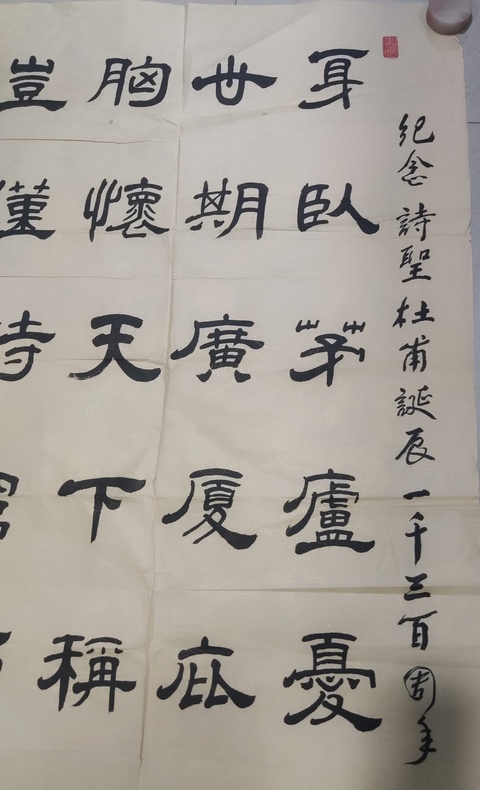 紀念詩聖杜甫誕辰一千三百周年
身臥茅廬憂
世期廣厦庇
胸懷天下稱
豈僅